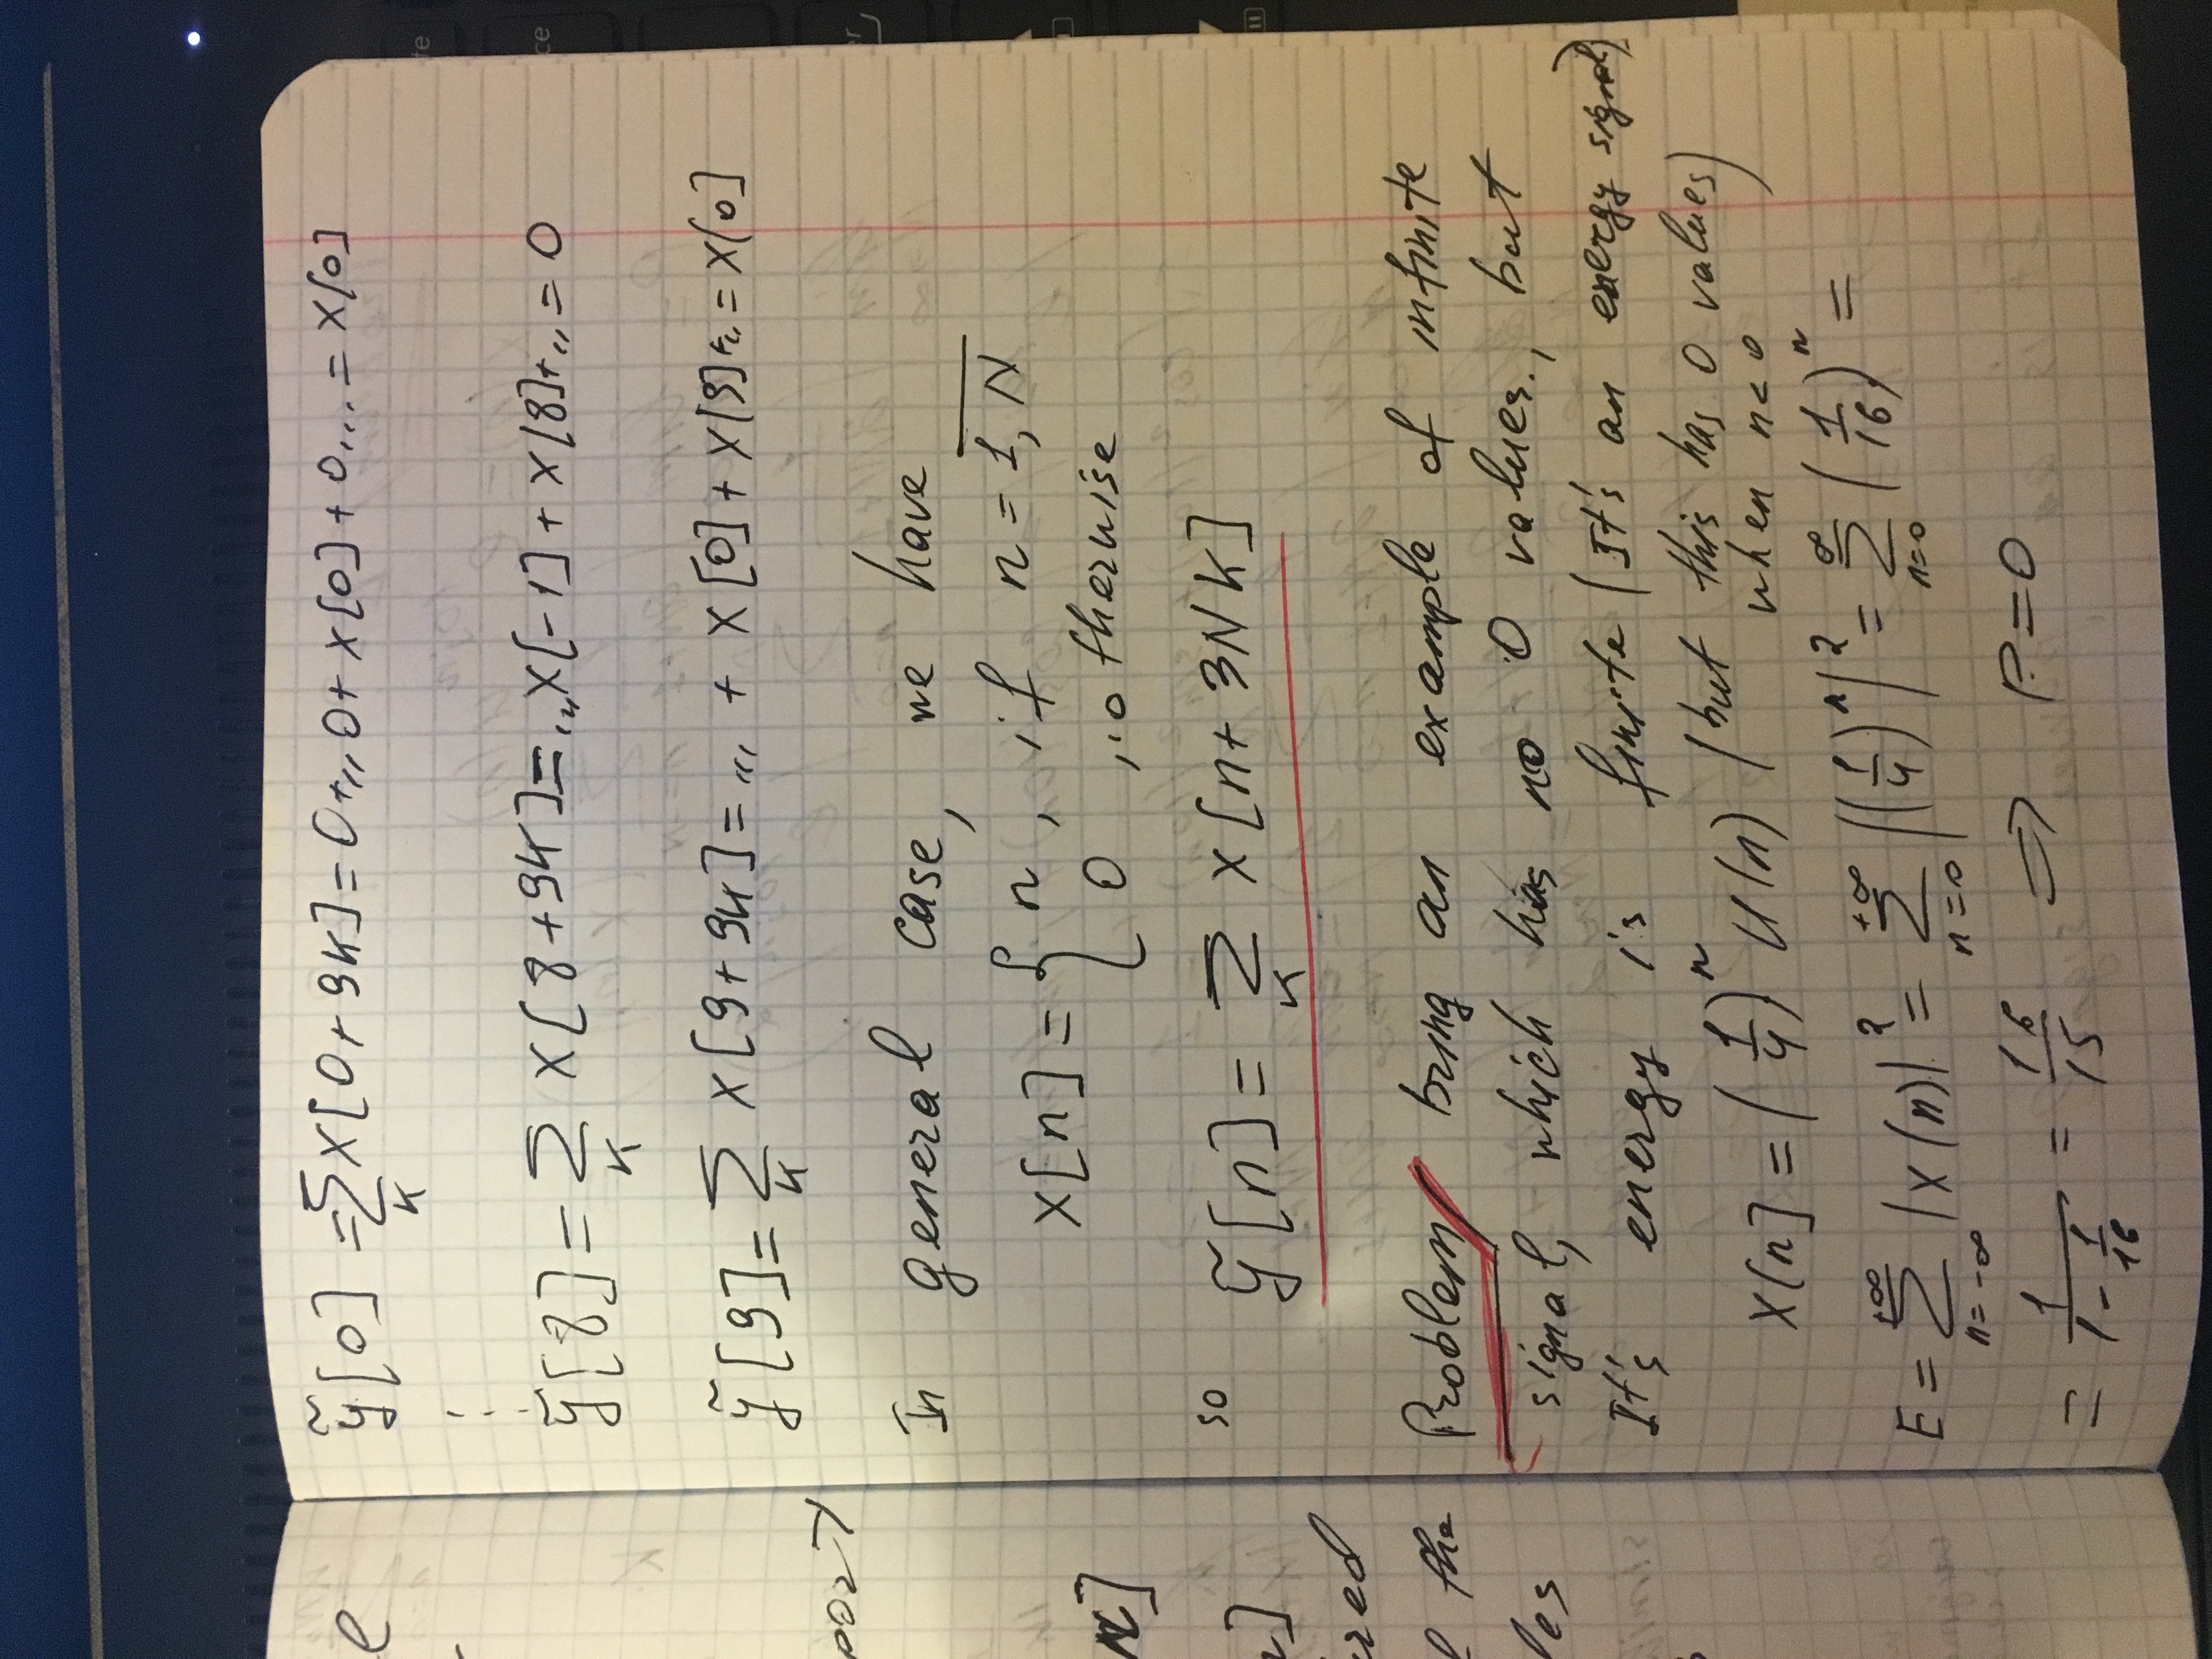 ỹ[0] = Σ_K x[0+9K] = 0+,,, 0+ x[0] + 0,,, = x[0]
⋮
ỹ[8] = Σ_K x[8+9K] = ,,, x[-1] + x[8]+,,, = 0
ỹ[9] = Σ_K x[9+9K] = ,,, + x[0] + x[9]+,,, = x[0]
In general case, we have
x[n] = { n , if n = 1, N
0 , otherwise
so ỹ[n] = Σ_K x[n+ 3NK]
Problem bring an example of infinite
signal, which has no 0 values., but
It's energy is finite (It's an energy signal)
x[n] = (1/4)^n u(n) (but this has 0 values)
when n<0
E = Σ_{n=-∞}^{+∞} |x(n)|^2 = Σ_{n=0}^{+∞} |(1/4)^n|^2 = Σ_{n=0}^{∞} (1/16)^n =
= 1/(1 - 1/16) = 16/15 ⟹ P=0
e
port
n]
]
red
the
les